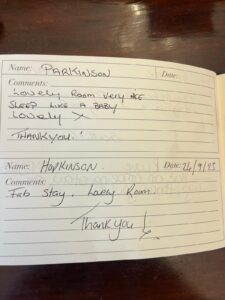 Name: PARKINSON Date:
Comments:
Lovely Room very
SLEEP LIKE A BABY
LOVELY X
THANKYOU.
Name: HOPKINSON Date: 24/9/
Comments:
Fab Stay. Lovely Room
Thank you!